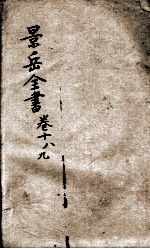 景岳全書
卷十八九